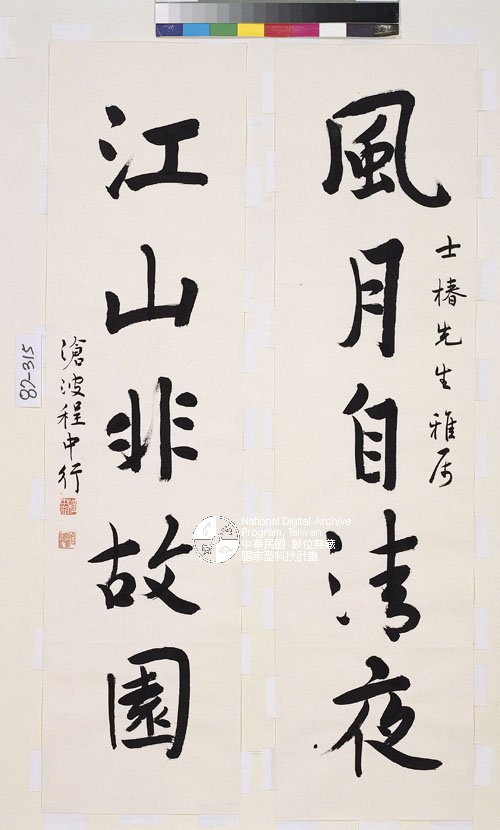 風月自清夜
士樁先生雅屬
江山非故園
滄波程中行
82-315
National Digital Archive
Program, Taiwan
中華民國 數位典藏
國家型科技計畫